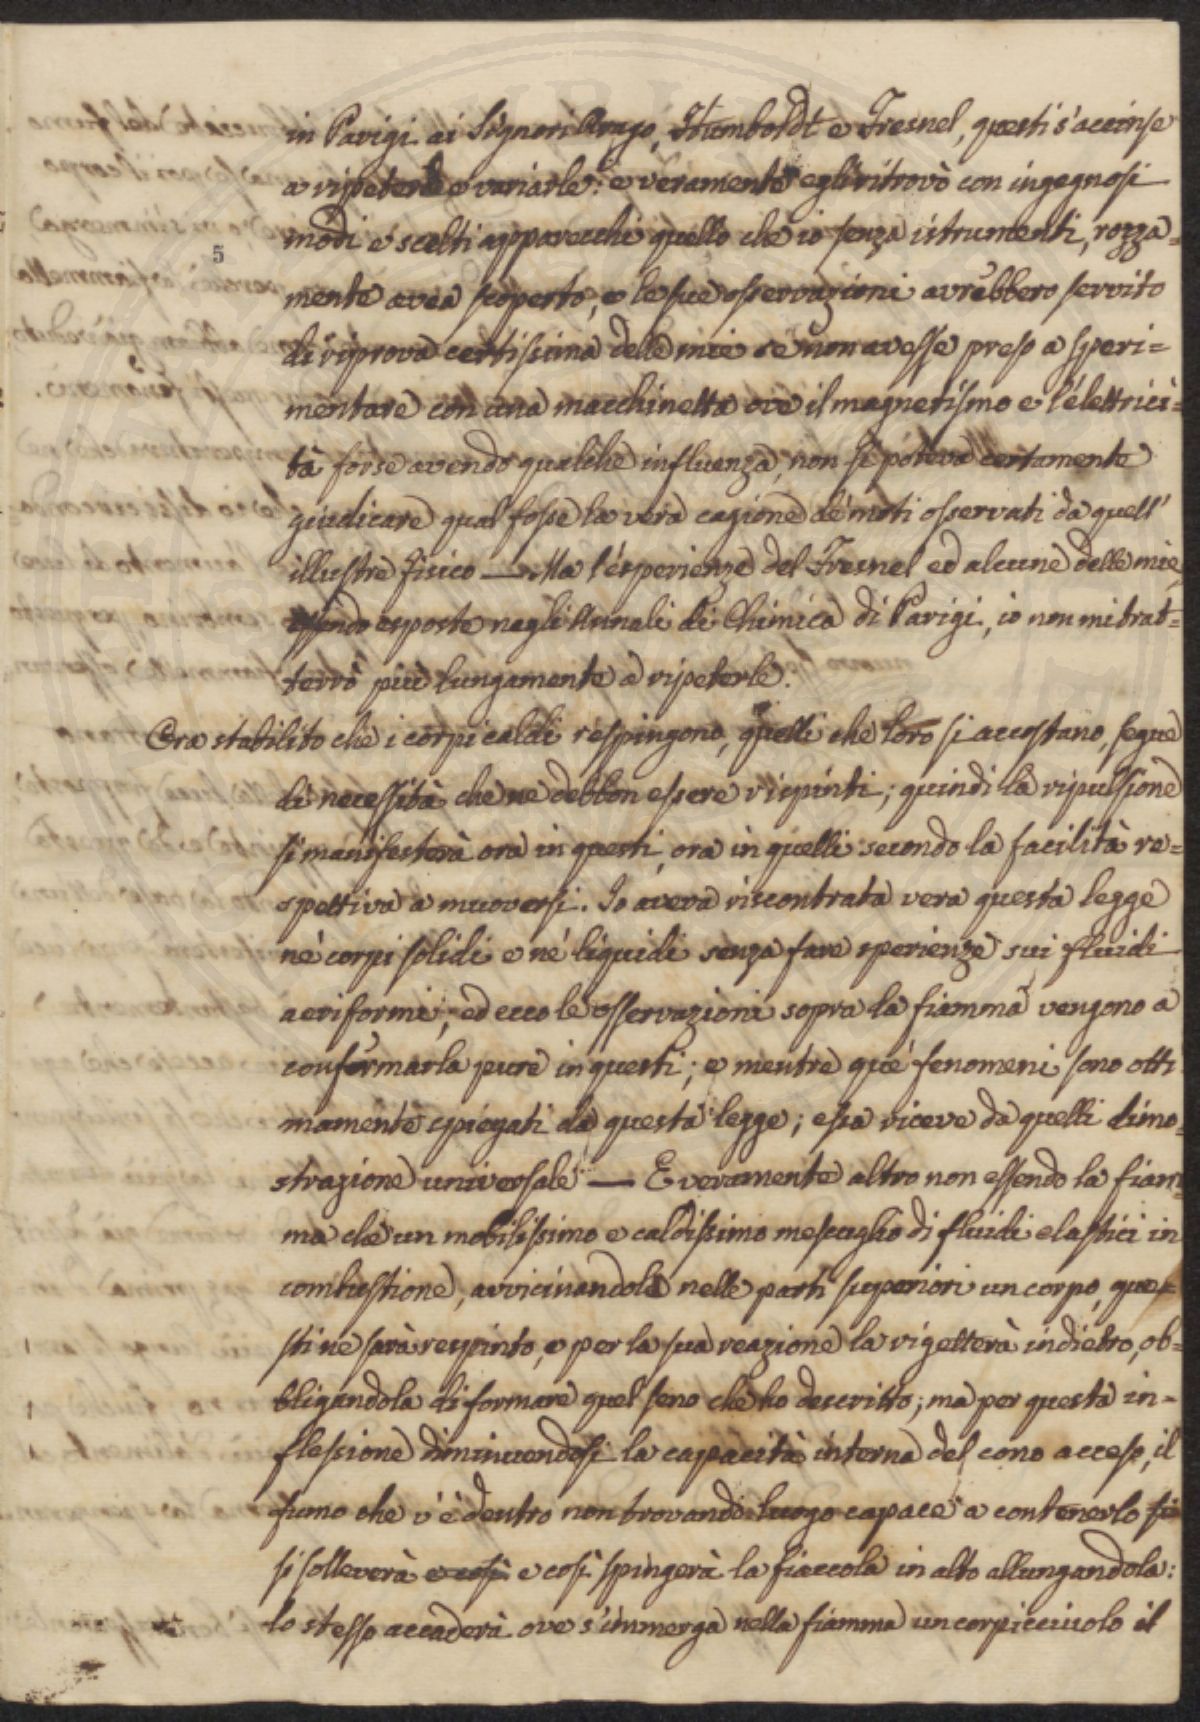 in Parigi ai Signori Arago, Humboldt e Fresnel, questi s'accinse
a ripeterle e variarle: e veramente egli ritrovò con ingegnosi
modi e scelti apparecchi quello che io senza istrumenti, rozza=
5
mente avea scoperto, e le sue osservazioni avrebbero servito
di riprova certissima delle mie se non avesse preso a speri=
mentare con una macchinetta ove il magnetismo e l'elettrici=
tà forse avendo qualche influenza, non si poteva certamente
giudicare qual fosse la vera cagione de' moti osservati da quell'
illustre fisico — Ma l'esperienze del Fresnel ed alcune delle mie
essendo esposte negli Annali di Chimica di Parigi, io non mi trat=
terrò più lungamente a ripeterle.
Ora stabilito che i corpi caldi respingono, quelli che loro si accostano, segue
di necessità che ne debbon essere rispinti; quindi la ripulsione
si manifesterà ora in questi ora in quelli secondo la facilità re=
spettiva a muoversi. Io aveva riscontrata vera questa legge
ne' corpi solidi e ne' liquidi senza fare sperienze sui fluidi
aeriformi; ed ecco le osservazioni sopra la fiamma vengono a
confermarla pure in questi; e mentre que' fenomeni sono otti
mamente spiegati da questa legge; essa riceve da quelli dimo=
strazione universale — E veramente altro non essendo la fiam=
ma che un mobilissimo e caldissimo mescuglio di fluidi elastici in
combustione, avvicinandole nelle parti superiori un corpo, que=
sti ne sarà respinto, e per la sua reazione la rigetterà indietro, ob=
bligandola di formare quel seno che ho descritto; ma per questa in=
flessione diminuendosi la capacità interna del cono acceso, il
fumo che v'è dentro non trovando luogo capace a contenerlo
si solleverà e così e così spingerà la fiaccola in alto allungandola:
lo stesso accaderà ove s'immerga nella fiamma un corpicciuolo il